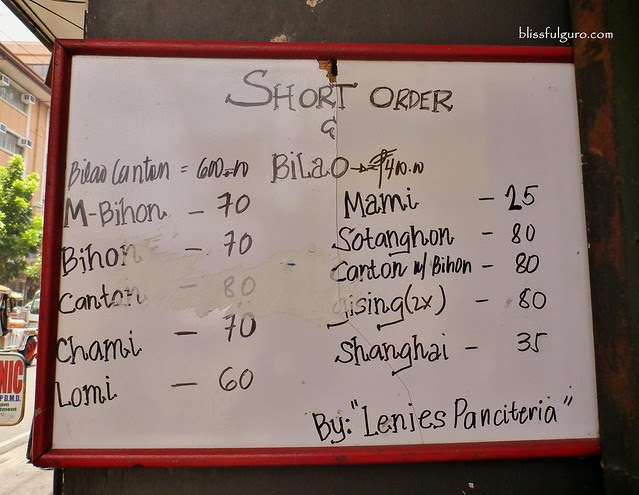 blissfulguro.com
SHORT ORDER
&
Bilao Canton = 600.00 BiLao → ₱400.00
M-Bihon - 70
Bihon - 70
Canton - 80
Chami - 70
Lomi - 60
Mami - 25
Sotanghon - 80
Canton w/ Bihon - 80
gising(2x) - 80
Shanghai - 35
By: "Lenies Panciteria"
NIC
P D.M.D.